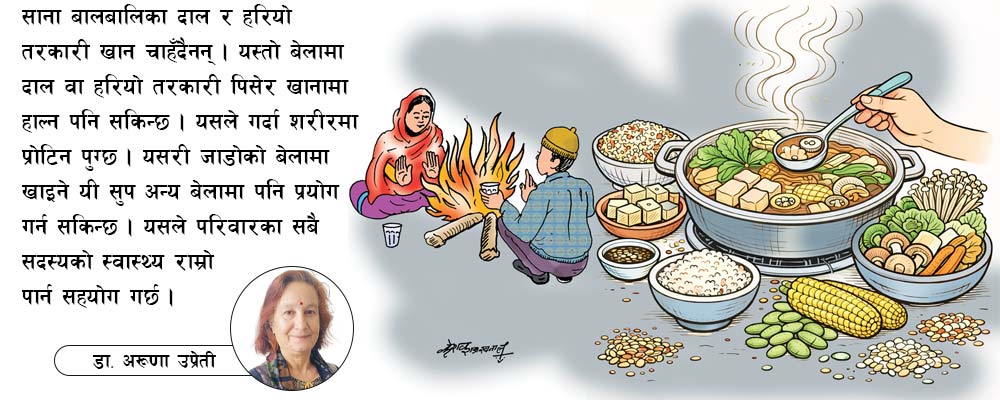 साना बालबालिका दाल र हरियो
तरकारी खान चाहँदैनन् । यस्तो बेलामा
दाल वा हरियो तरकारी पिसेर खानामा
हाल्न पनि सकिन्छ । यसले गर्दा शरीरमा
प्रोटिन पुग्छ । यसरी जाडोको बेलामा
खाइने यी सुप अन्य बेलामा पनि प्रयोग
गर्न सकिन्छ । यसले परिवारका सबै
सदस्यको स्वास्थ्य राम्रो
पार्न सहयोग गर्छ ।
डा. अरूणा उप्रेती